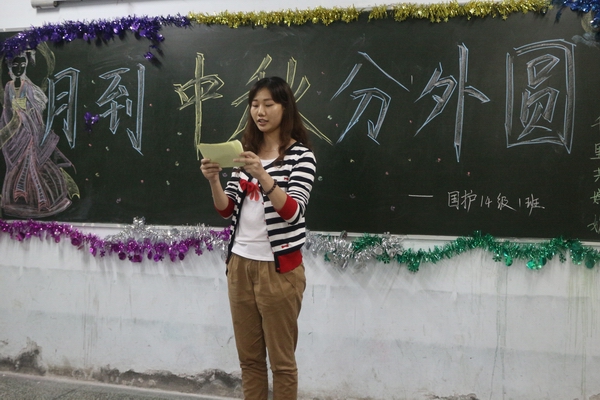 月到中秋分外圆
— 国护14级1班